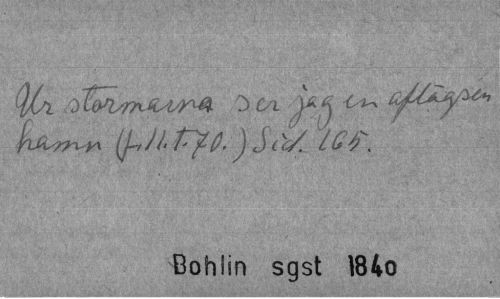 Ur stormarna ser jag en aflägsen
hamn (f.11.t.70.) Sid. 165.
Bohlin sgst 1840